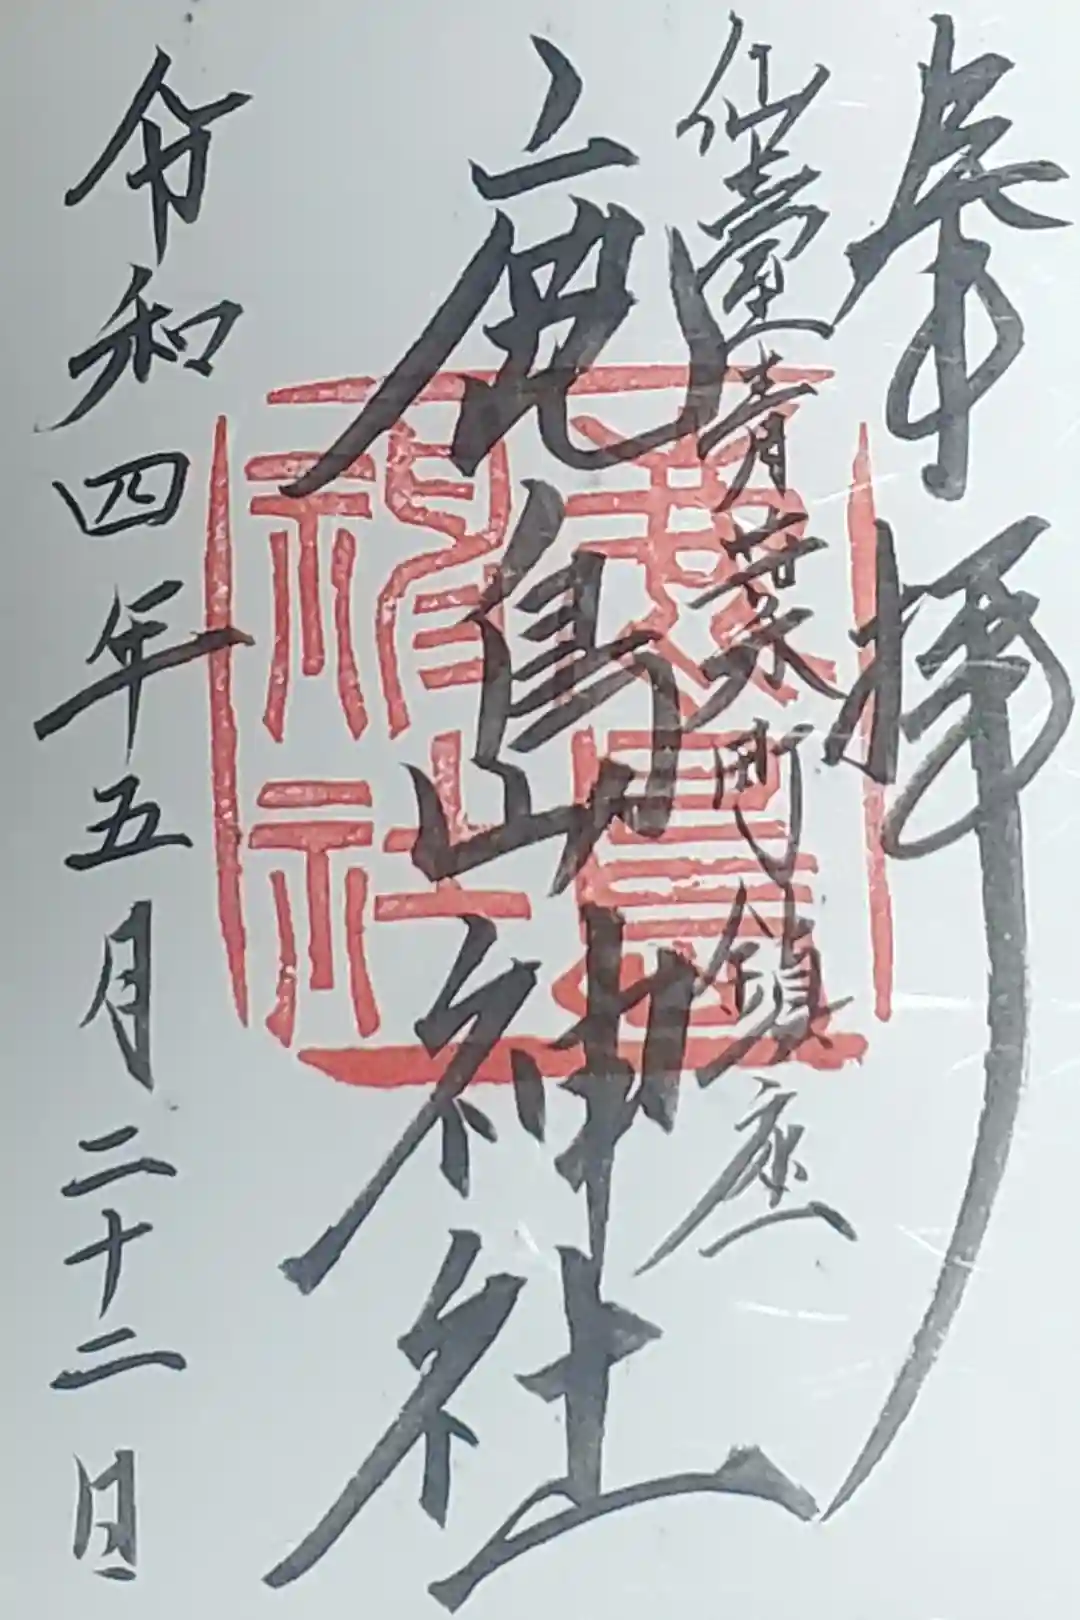 奉拝
仙臺青葉町鎮座
鹿島神社
令和四年五月二十二日
鹿島
神社